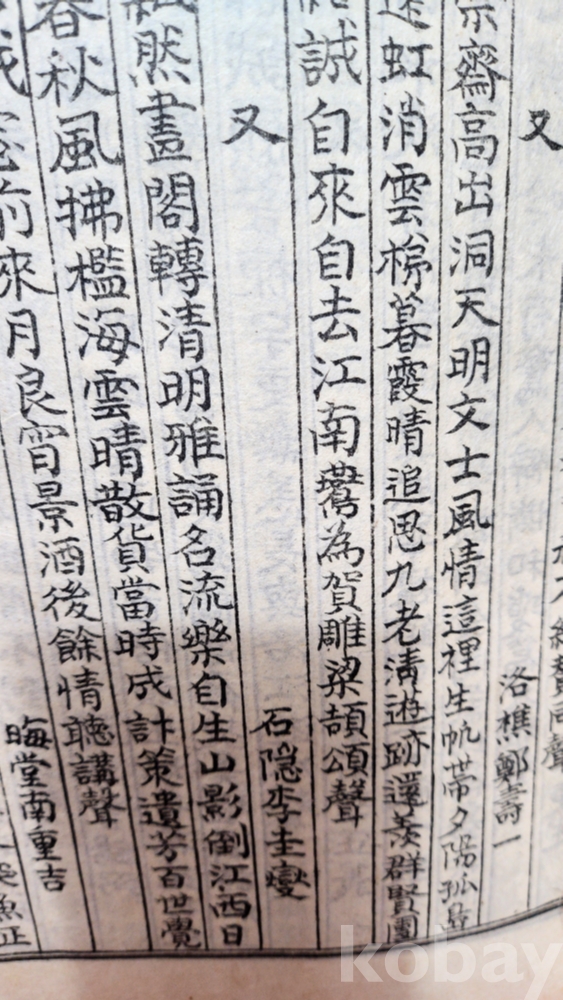 同聲
又 洛樵鄭壽一
齋高出洞天明文士風情這裡生帆帶夕陽孤
虹消雲梯暮霞晴追思九老清遊跡還羨群賢團
誠自來自去江南鷰為賀雕梁頡頌聲
又 石隱李圭燮
然畫閣轉清明雅誦名流樂自生山影倒江西日
春秋風拂檻海雲晴散貨當時成計策遺芳百世覺
前來月良宵景酒後餘情聽講聲
晦堂南重吉
kobay